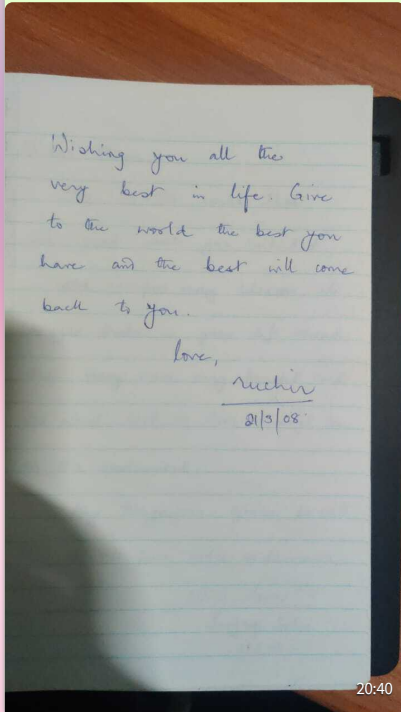 Wishing you all the
very best in life. Give
to the world the best you
have and the best will come
back to you.
love,
ruchir
21/3/08
20:40